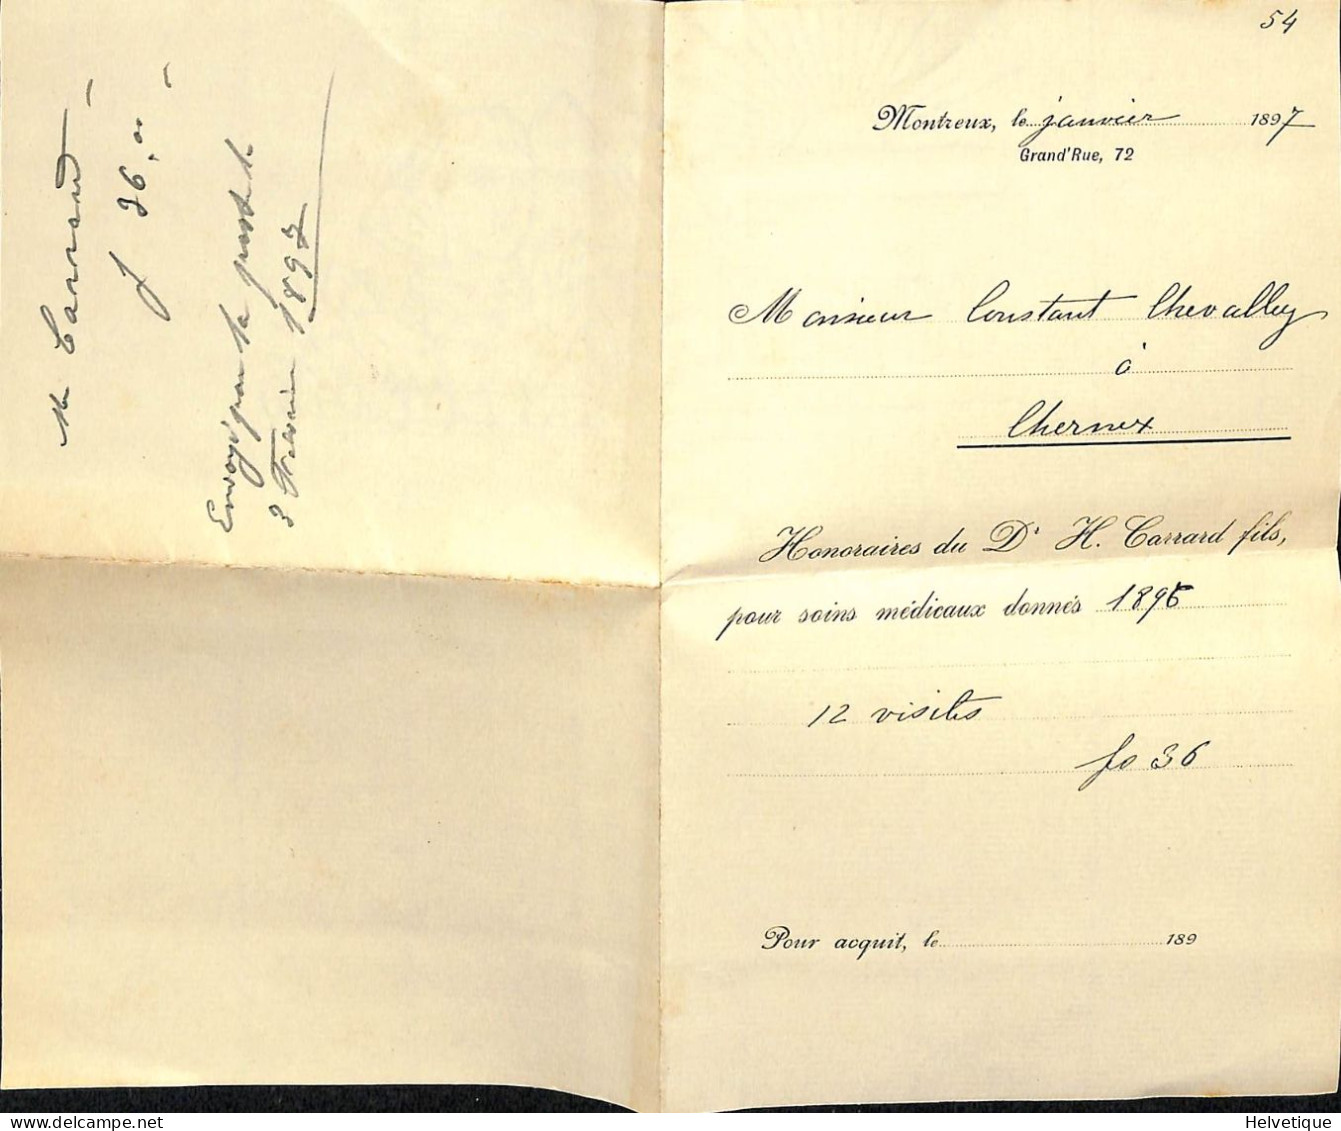 M Carrard
f 36,00
Envoyé par la poste le
3 Fevrier 1897
54
Montreux, le janvier 1897
Grand'Rue, 72
Monsieur Constant Chevalley
à
Chernex
Honoraires du Dr H. Carrard fils,
pour soins médicaux donnés 1896
12 visites
fs 36
Pour acquit, le 189
Helvetique